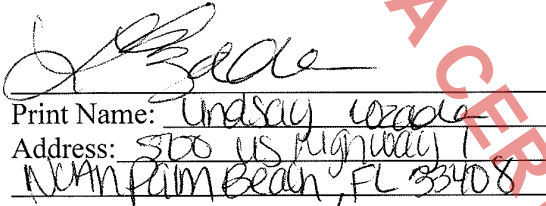 Print Name: Lindsay Lozada
Address: 500 US Highway 1
North Palm Beach, FL 33408
A CER